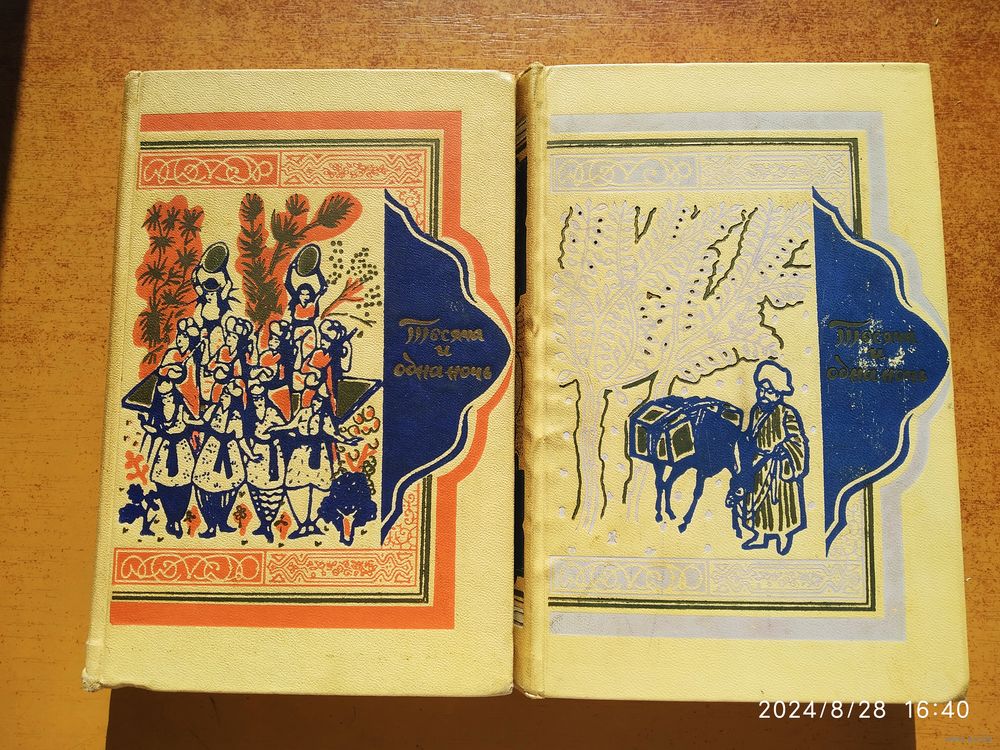 Тысяча
и
одна ночь
Тысяча
и
одна ночь
2024/8/28 16:40